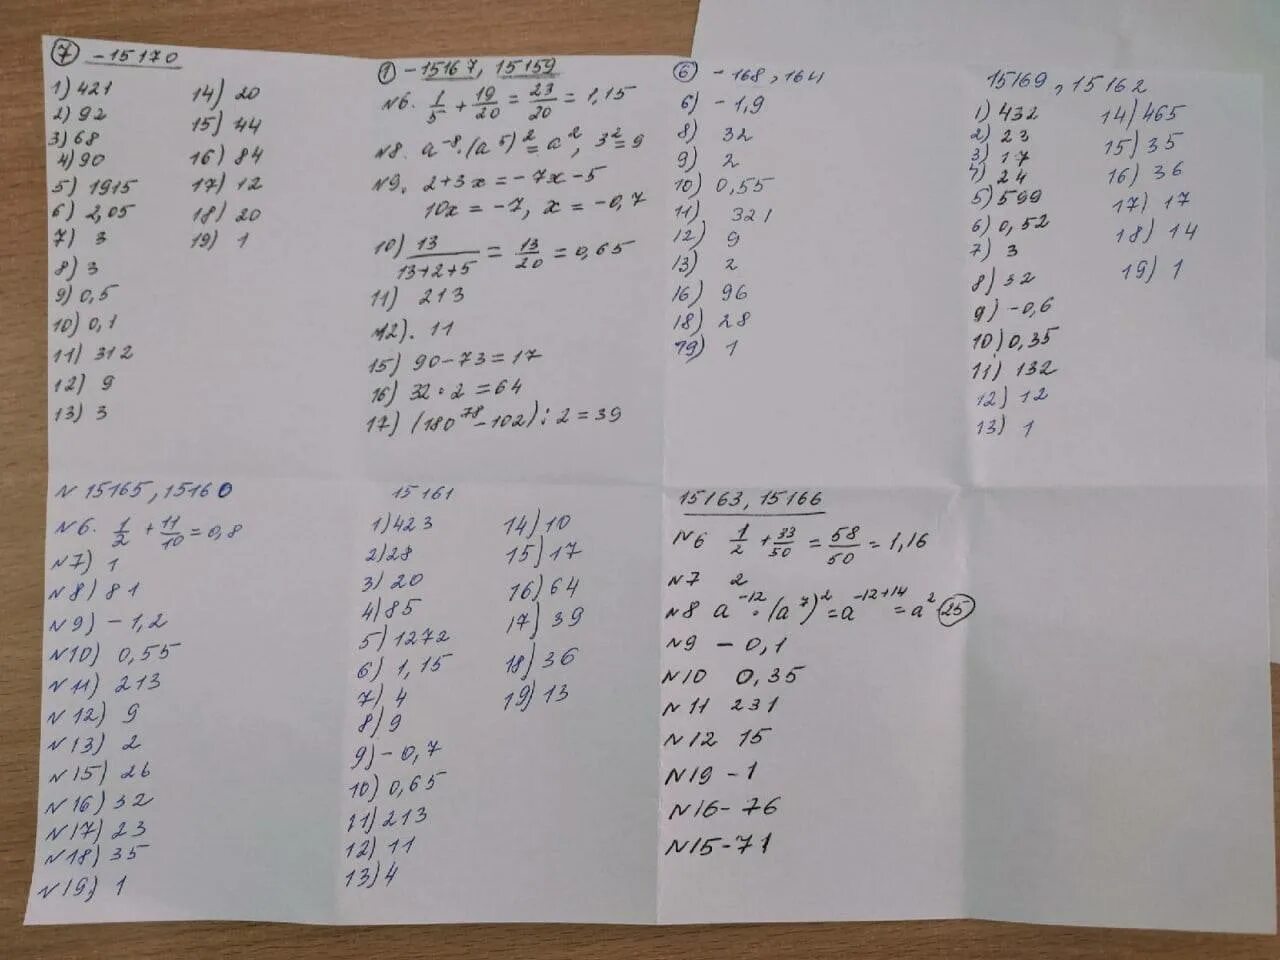 7 -15170
1) 421
2) 92
3) 68
4) 90
5) 1915
6) 2,05
7) 3
8) 3
9) 0,5
10) 0,1
11) 312
12) 9
13) 3
14) 20
15) 44
16) 84
17) 12
18) 20
19) 1
1 -15167, 15159
№6. 1/5 + 19/20 = 23/20 = 1,15
№8. a^-8 · (a^5)^2 = a^2, 3^2 = 9
№9. 2+3x = -7x-5
10x = -7, x = -0,7
10) 13/(13+2+5) = 13/20 = 0,65
11) 213
12). 11
15) 90-73=17
16) 32·2=64
17) (180^78-102):2=39
6 -168, 164
6) -1,9
8) 32
9) 2
10) 0,55
11) 321
12) 9
13) 2
16) 96
18) 28
19) 1
15169, 15162
1) 432
2) 23
3) 17
4) 24
5) 599
6) 0,52
7) 3
8) 32
9) -0,6
10) 0,35
11) 132
12) 12
13) 1
14) 465
15) 35
16) 36
17) 17
18) 14
19) 1
№ 15165, 15160
№6. 1/2 + 11/10 = 0,8
№7) 1
№8) 81
№9) -1,2
№10) 0,55
№11) 213
№12) 9
№13) 2
№15) 26
№16) 32
№17) 23
№18) 35
№19) 1
15161
1) 423
2) 28
3) 20
4) 85
5) 1272
6) 1,15
7) 4
8) 9
9) -0,7
10) 0,65
11) 213
12) 11
13) 4
14) 10
15) 17
16) 64
17) 39
18) 36
19) 13
15163, 15166
№6 1/2 + 33/50 = 58/50 = 1,16
№7 2
№8 a^-12 · (a^7)^2 = a^-12+14 = a^2 25
№9 -0,1
№10 0,35
№11 231
№12 15
№19 -1
№16- 76
№15-71